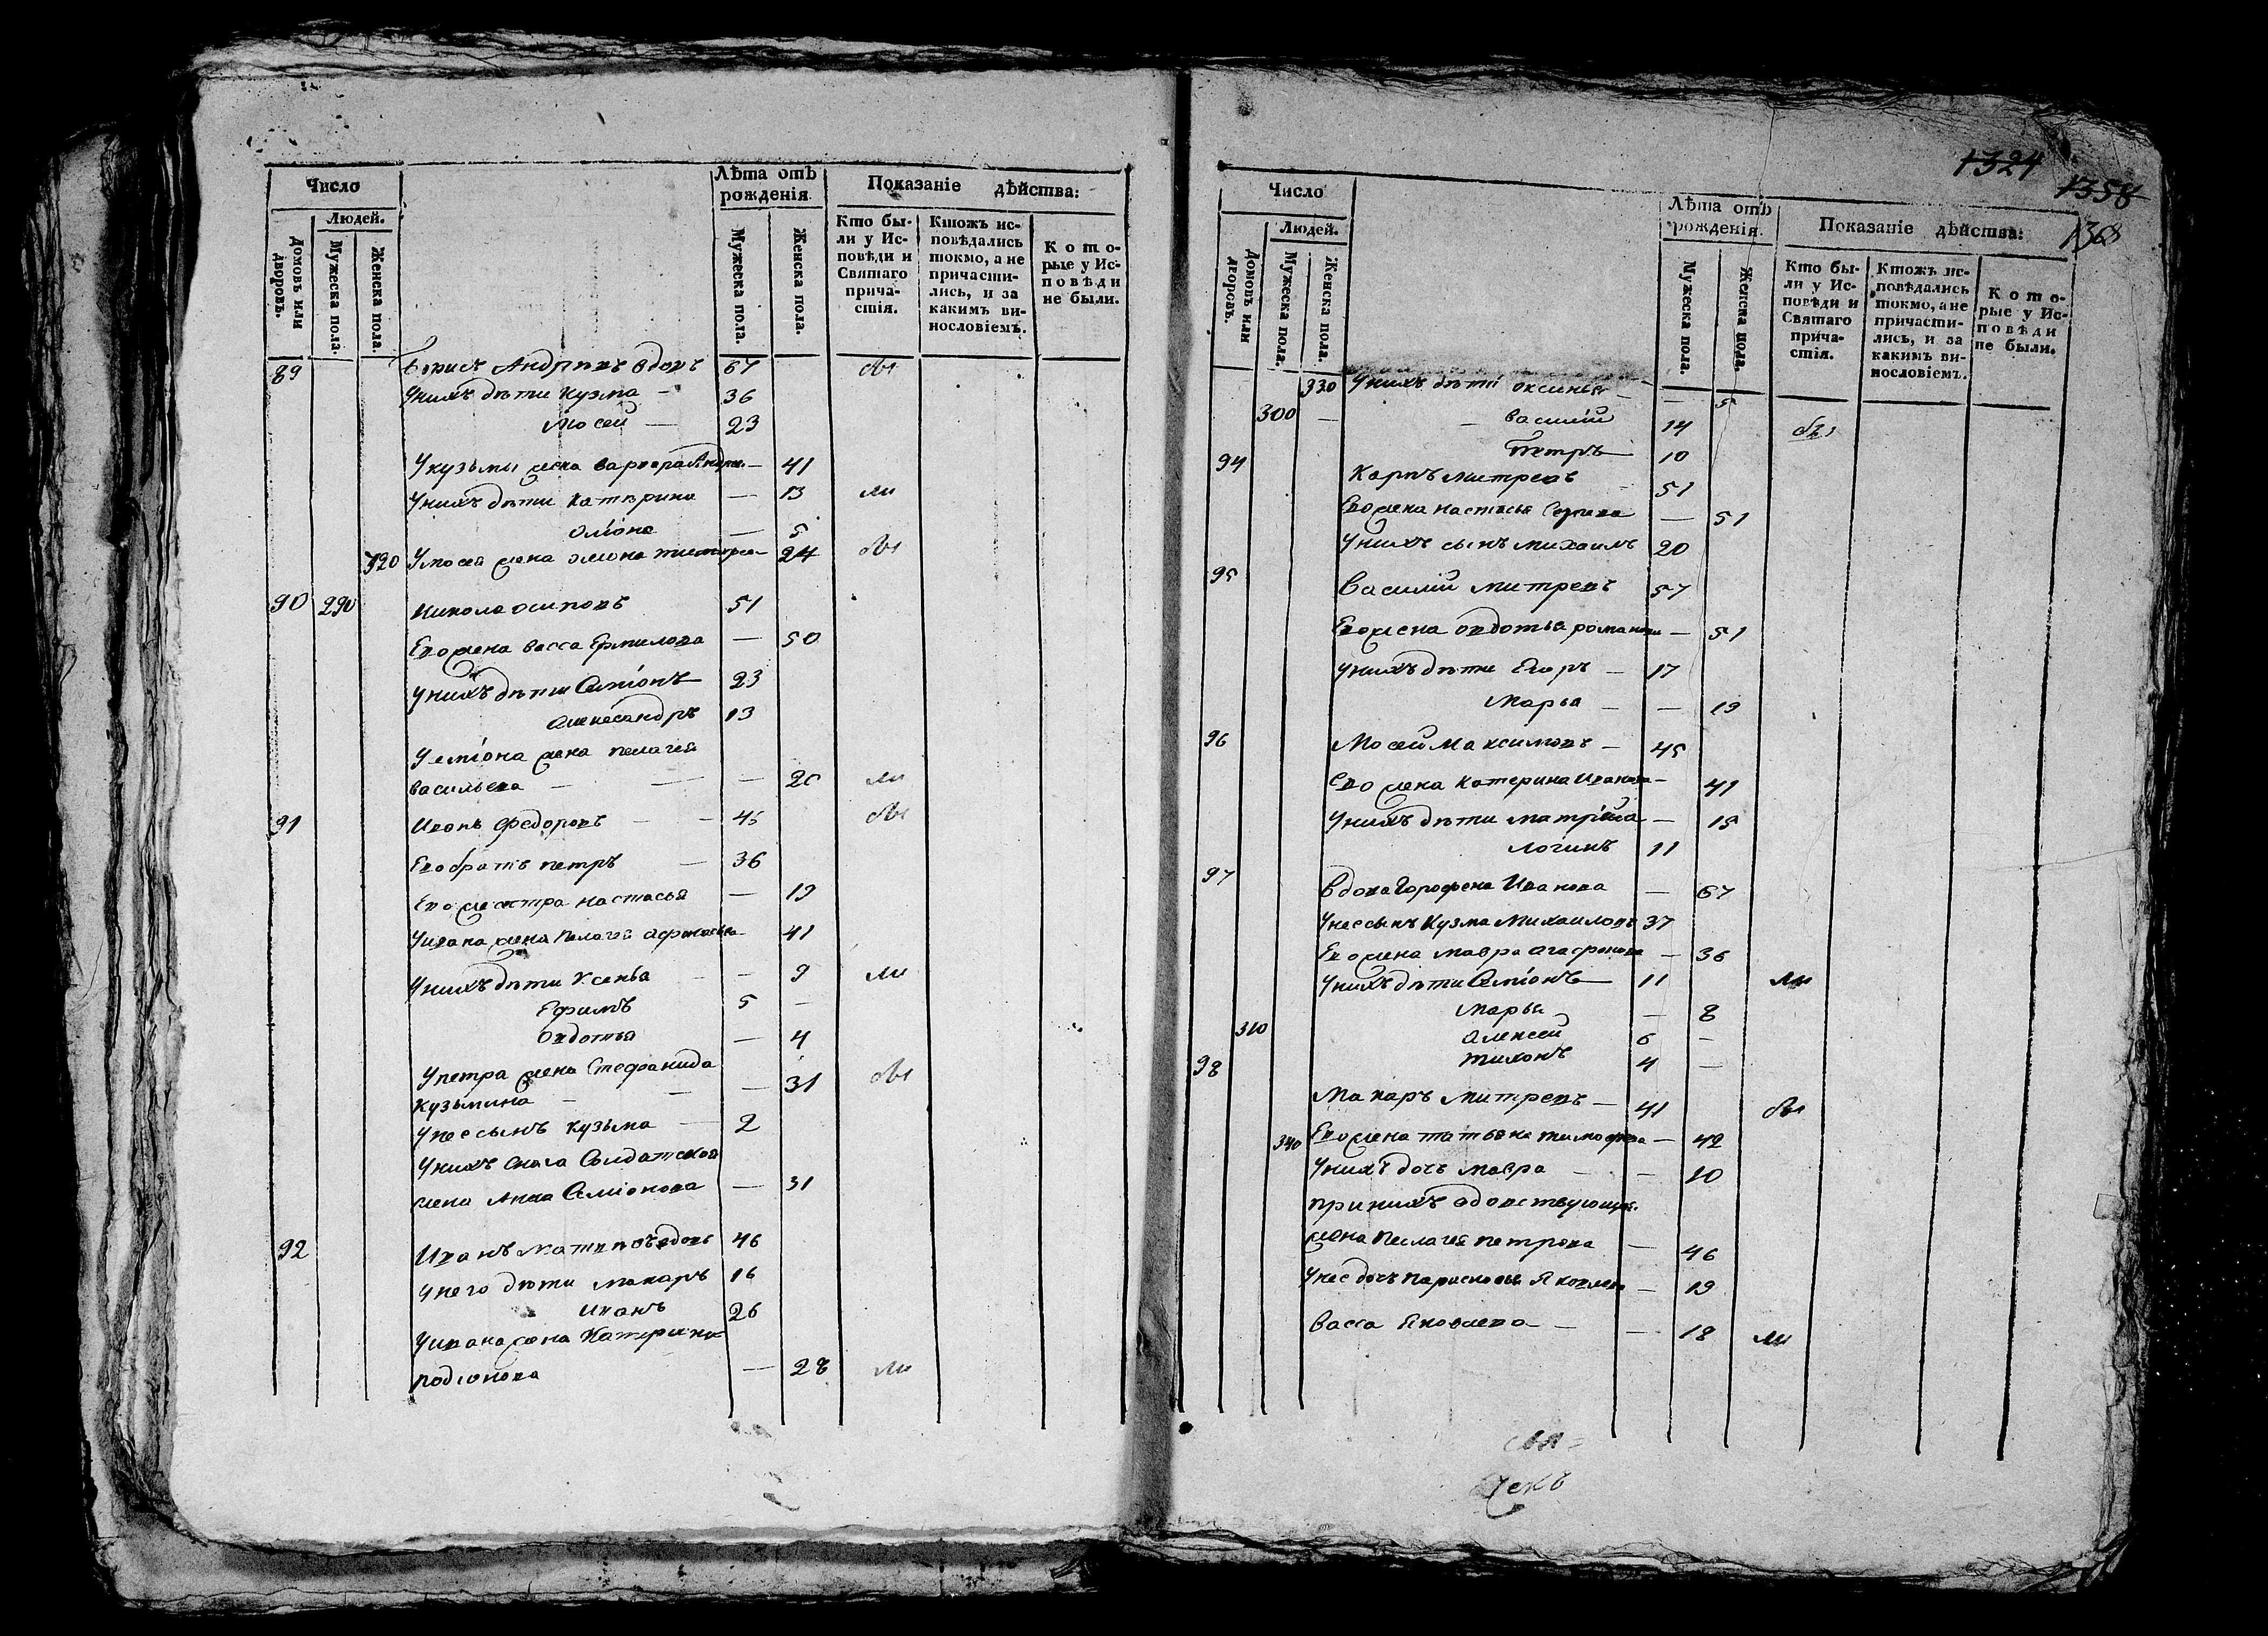 Число
Людей.
Домовъ или дворовъ.
Мужеска пола.
Женска пола.
Лѣта отъ рожденія.
Мужеска пола.
Женска пола.
Показаніе дѣйства:
Кто бы-
ли у Ис-
повѣди и
Святаго
прича-
стія.
Ктожъ ис-
повѣдались
токмо, а не
причасти-
лись, и за
какимъ ви-
нословіемъ.
К о т о-
рые у Ис-
п о в ѣ д и
не были.
89 Борисъ Андреевъ вдовъ 67 бы
Унихъ дѣти Кузма — 36
Мосей — 23
Укузьмы жена варвара — 41
Унихъ дѣти Катерина — 13 ли
Олiона — 5
320 Умосея жена — 24 бы
90 290 Никола осиповъ 51
Его жена васса Ермилова — 50
Унихъ дѣти Семiонъ 23
Александръ 13
Усемiона жена пелагея
васильева — — 20 ли
91 Иванъ Федоровъ — — 45 бы
Его братъ петръ — 36
Его сестра настасья — 19
Уивана жена Пелагея афонасьева — 41
Унихъ дѣти Ксенья — — 9 ли
Ефимъ 5 —
Овдотья — 4
Упетра жена Стефанида
Кузьмина — — — 31 бы
Унее сынъ кузьма — 2
Унихъ сноха Солдатская
жена Анна Семiонова — 31
92 Иванъ вдовъ 46
Унего дѣти макаръ 16
Иванъ 26
Уивана жена Катерина
родионова — 28 ли
1324
1358
1368
Число
Людей.
Домовъ или дворовъ.
Мужеска пола.
Женска пола.
Лѣта отъ рожденія.
Мужеска пола.
Женска пола.
Показаніе дѣйства:
Кто бы-
ли у Ис-
повѣди и
Святаго
прича-
стія.
Ктожъ ис-
повѣдались
токмо, а не
причасти-
лись, и за
какимъ ви-
нословіемъ.
К о т о-
рые у Ис-
п о в ѣ д и
не были.
330 Унихъ дѣти оксинья — — 5
300 — — василий 14 бы
Петръ 10
94 Карпъ митревъ 51
Его жена настасья — 51
Унихъ сынъ михаилъ 20
95 Василий митревъ 57
Его жена овдотья романова — 51
Унихъ дѣти Егоръ — 17
Марья — — 19
96 Мосей Максимовъ — 45
Его жена Катерина Иванова — 41
Унихъ дѣти — 15
Логинъ 11
97 Вдова Иванова — 67
Унее сынъ Кузма Михаиловъ 37
Его жена мавра агафонова — 36
Унихъ дѣти Семiонъ — 11 ли
Марья — 8
310 Алексей 6 —
Тихонъ 4 —
98 Макаръ Митревъ — 41 бы
340 Его жена татьяна тимофеева — 42
Унихъ дочь мавра — — 10
принихъ вдовствующая
жена Пелагея петрова — 46
Унее дочь Парасковья Яковлева — 19
васса Яковлева — — 18 ли